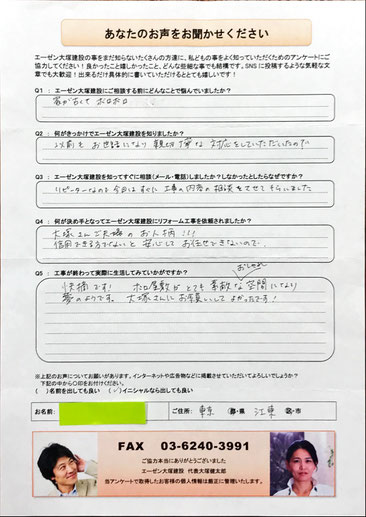 あなたのお声をお聞かせください
エーゼン大塚建設の事をまだ知らないたくさんの方達に、私どもの事をよく知っていただくためのアンケートにご
協力してください！良かったこと嬉しかったこと、どんな些細な事でも結構です。SNSに投稿するような気軽な文
章でも大歓迎！出来るだけ具体的に書いていただけるととても嬉しいです！
Q1：エーゼン大塚建設にご相談する前にどんなことで悩んでいましたか？
家が古くて ボロボロ
Q2：何がきっかけでエーゼン大塚建設を知りましたか？
以前も お世話になり 親切丁寧な 対応をしていただいたので
Q3：エーゼン大塚建設を知ってすぐに相談（メール・電話）しましたか？しなかったとしたらなぜですか？
リピーターなので 今回は すぐに 工事の内容の相談をさせてもらいました
Q4：何が決め手となってエーゼン大塚建設にリフォーム工事を依頼されましたか？
大塚さんご夫婦の お人柄!!!
信用できる方でないと 安心して お任せできないので
Q5：工事が終わって実際に生活してみていかがですか？
おしゃれ
快適です! ボロ屋敷が とても 素敵な空間になり
夢のようです。 大塚さんに お願いして よかったです!
※上記のお声についてお願いがあります。インターネットや広告物などに掲載させていただいてよろしいでしょうか？
下記の中から〇印をお付けください。
（ ）名前を出しても良い （✓）イニシャルなら出しても良い
お名前： ご住所： 東京 都・県 江東 区・市
FAX 03-6240-3991
ご協力本当にありがとうございました
エーゼン大塚建設 代表大塚健太郎
当アンケートで取得したお客様の個人情報は厳正に管理いたします。